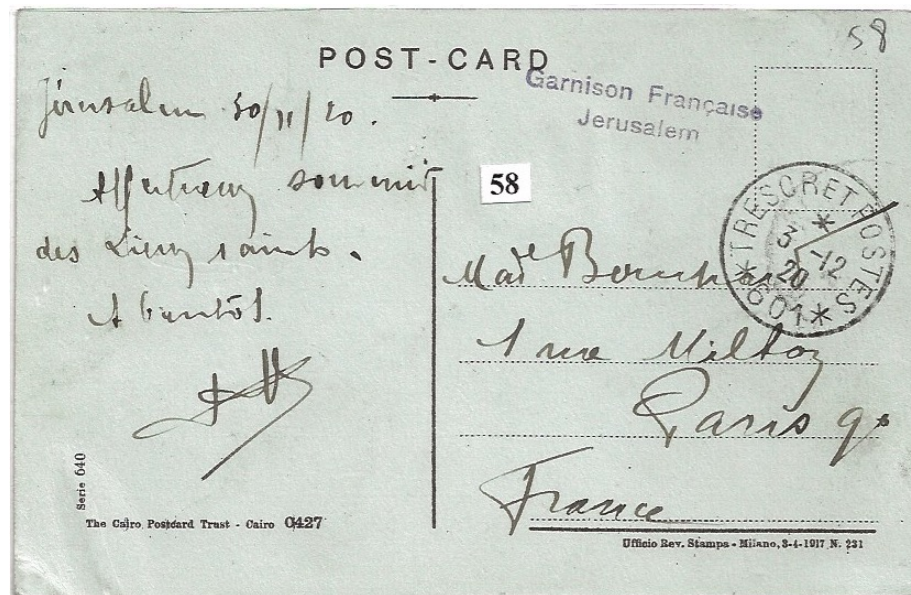 58
POST-CARD
Garnison Française
Jerusalem
Jérusalem 30/11/20.
Affectueux souvenir
des Lieux saints.
A bientôt.
58
TRESOR ET POSTES
3-12
20
*601*
Mad
1 rue Milton
Paris 9e
France
Serie 640
The Cairo Postcard Trust - Cairo 0427
Ufficio Rev. Stampa - Milano, 3-4-1917 N. 231